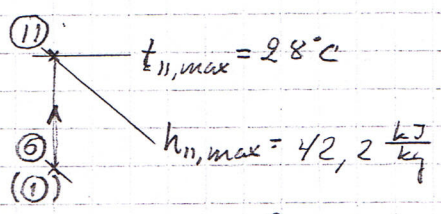 (11)
t11,max = 28°C
h11,max = 42,2 kJ/kg
(6)
(1)